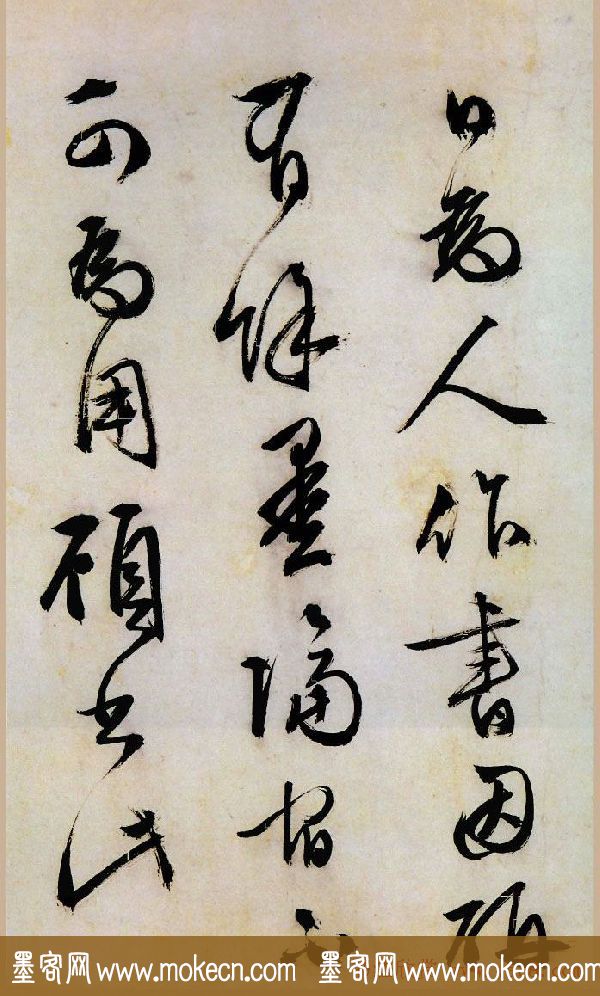 日為人作書因
有餘墨隔宿不
可為用書此
墨客网 www.mokecn.com 墨客网 www.mokecn.com